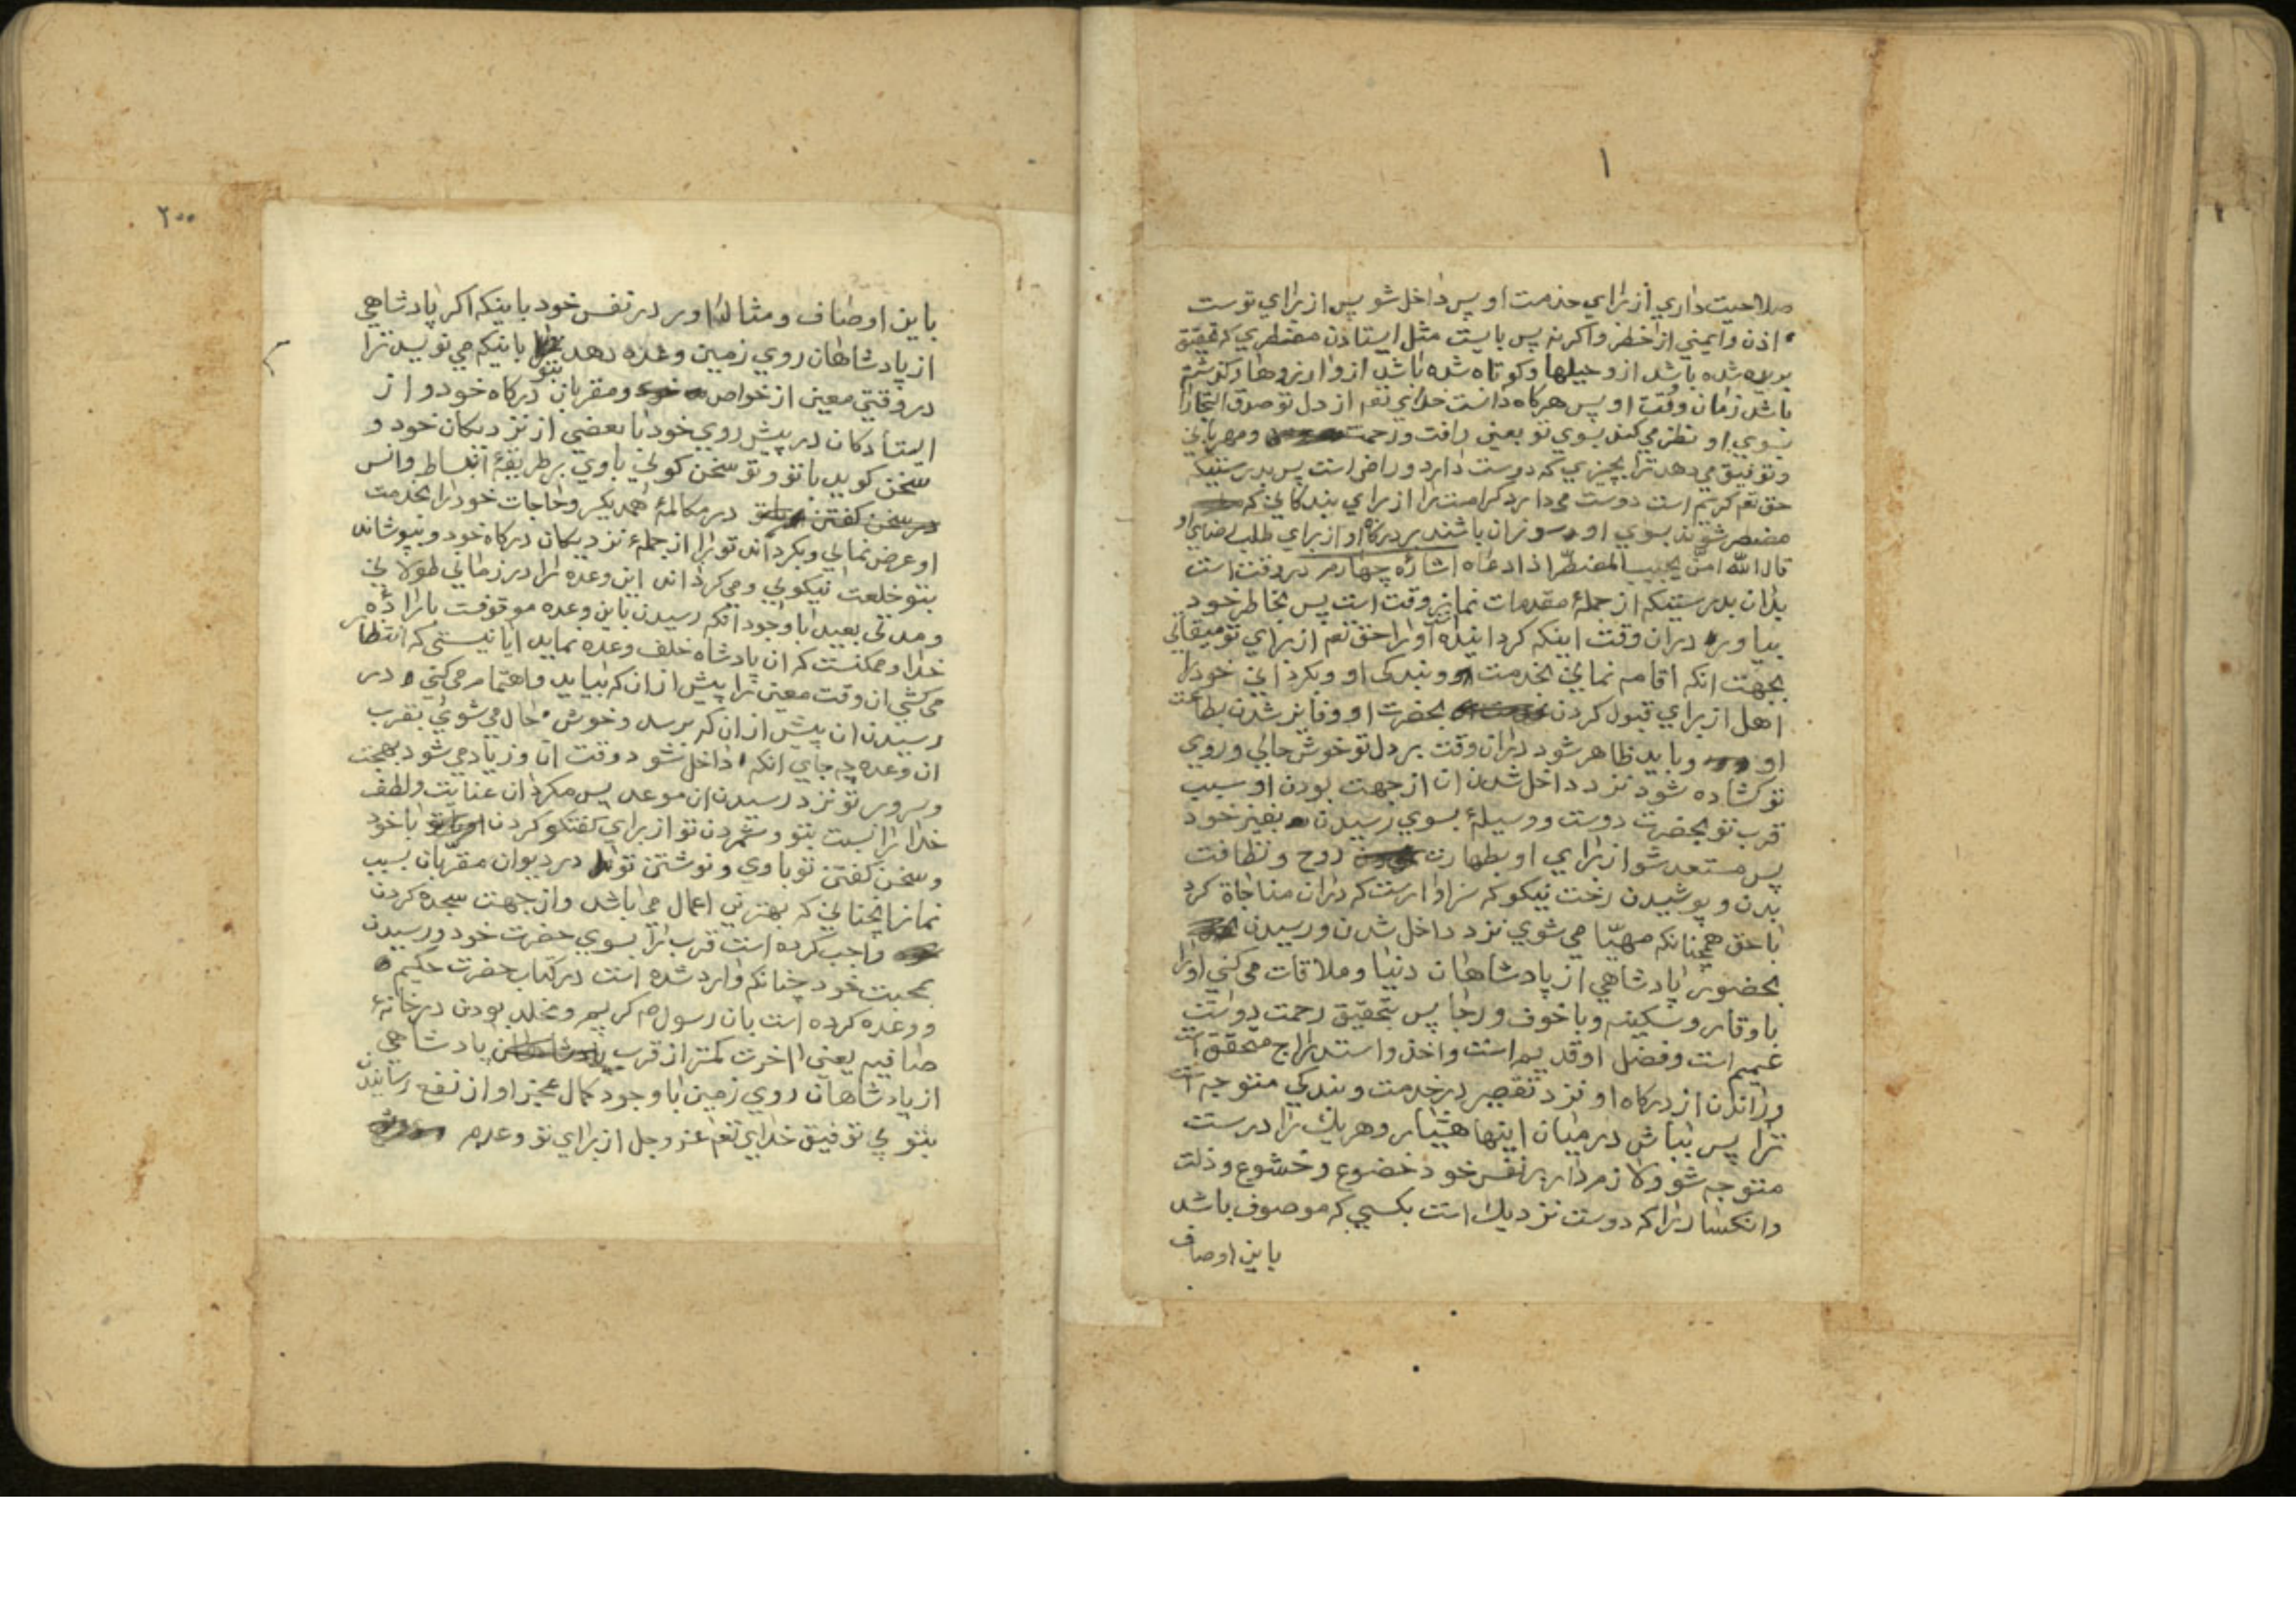 ۱
صلاحیت داری از برای خدمت او پس داخل شو پس از برای توست
اذن و ایمنی از خطر و اکر نه پس بایست مثل ایستادن مضطری که تحقیق
بریده شده باشد ازو حیلها و کوتاه شده باشد ازو ارزوها و کذشته
باشد زمان وقت او پس هرکاه دانست خدای تعم از دل تو صدق التجا را
بسوی او نظر می کند بسوی تو بعین رافت و رحمت و مهربانی
و توفیق می دهد ترا بچیزی که دوست دارد و راضی است پس بدرستیکه
حق تعم کریم است دوست می دارد کرامت را از برای بندکانی که
مضطر شوند بسوی او و سوزان باشند بر درکاه او از برای طلب رضای او
قال الله امن یجیب المضطر اذا دعاه اشارهٔ چهارم در وقت است
بدان بدرستیکه از جملهٔ مقدمات نماز وقت است پس بخاطر خود
بیاور در ان وقت اینکه کردانیده است او را حق تعم از برای تو میقاتی
بجهت انکه اقامه نمایی بخدمت و بندکی او و بکردانی خود را
اهل از برای قبول کردن بحضرت او و فایز شدن بطاعت
او و باید ظاهر شود در ان وقت بر دل تو خوش حالی و روی
تو کشاده شود نزد داخل شدن ان از جهت بودن او سبب
قرب تو بحضرت دوست و وسیلهٔ بسوی رسیدن بفیز خود
پس مستعد شو از برای او بطهارت روح و نظافت
بدن و پوشیدن رخت نیکو که سزاوارست که در ان مناجاة کرد
با حق همچنانکه مهیّا می شوی نزد داخل شدن و رسیدن
بحضور پادشاهی از پادشاهان دنیا و ملاقات می کنی او را
با وقار و سکینه و با خوف و رجا پس بتحقیق رحمت دوست
عمیم است و فضل او قدیم است و اخذ و استدراج متحقق است
و راندن از درکاه او نزد تقصیر در خدمت و بندکی متوجه است
ترا پس بباش در میان اینها هشیار و هر یك را درست
متوجه شو و لازم دار بر نفس خود خضوع و خشوع و ذلت
و انکسار را که دوست نزدیك است بکسی که موصوف باشد
باین اوصاف
۲۰۰
باین اوصاف و مثالی اور در نفس خود باینکه اکر پادشاهی
از پادشاهان روی زمین وعده دهد بتو باینکه می نویسد ترا
در وقتی معین از خواص و مقربان درکاه خود و از
ایستادکان در پیش روی خود با بعضی از نزدیکان خود و
سخن کوید با تو و تو سخن کوئی با وی بر طریقهٔ انبساط و انس
در سخن کفتن در مکالمهٔ همدیکر و حاجات خود را بخدمت
او عرض نمایی و بکرداند تو را از جملهٔ نزدیکان درکاه خود و بپوشاند
بتو خلعت نیکویی و می کرداند این وعده را در زمانی طولانی
و مدتی بعید با وجود انکه رسیدن باین وعده موقوفست بارادهٔ
خدا و ممکنست که ان پادشاه خلف وعده نماید ایا نیستی که انتظار
می کشی ان وقت معین را پیش از ان که بیاید و اهتمام می کنی در
رسیدن ان پیش از ان که برسد و خوش حال می شوی بقرب
ان وعده چه جای انکه داخل شود وقت ان و زیاد می شود بهجت
و سرور تو نزد رسیدن ان موعد پس مکردان عنایت و لطف
خدا را نسبت بتو و شمردن تو از برای کفتکو کردن با خود
و سخن کفتن تو با وی و نوشتن تو در دیوان مقرّبان بسبب
نماز انچنانی که بهترین اعمال می باشد و از جهت سجده کردن
واجب کرده است قرب ترا بسوی حضرت خود و رسیدن
بمحبت خود چنانکه وارد شده است در کتاب حضرت حکیم
و وعده کرده است بان رسول م کریم و مخلد بودن در خانهٔ
صافیه یعنی اخرت کمتر از قرب پادشاهی
از پادشاهان روی زمین با وجود کمال عجز او از نفع رسانیدن
بتو بی توفیق خدای تعم عز و جل از برای تو و عدم